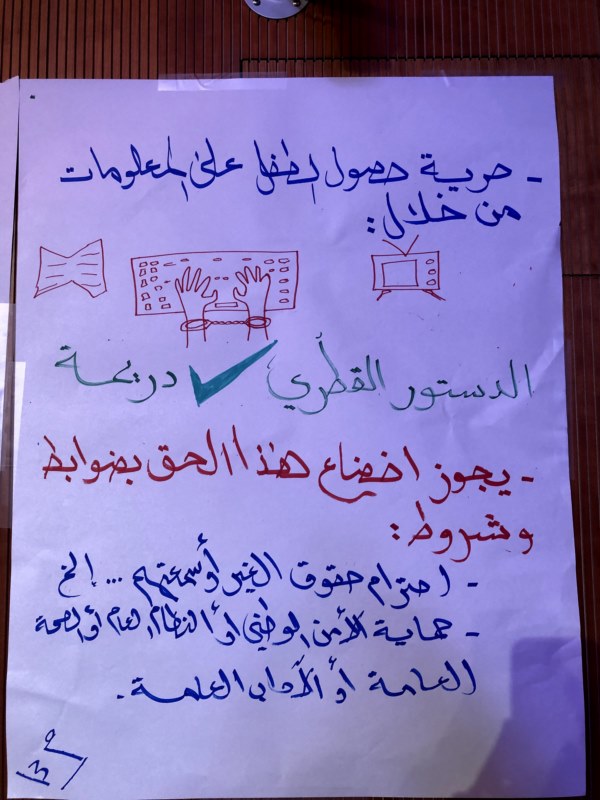 - حرية حصول الطفل على المعلومات
من خلال:
الدستور القطري ✓ دريمة
- يجوز اخضاع هذا الحق بضوابط
وشروط:
- احترام حقوق الغير أو سمعتهم ... إلخ
- حماية الأمن الوطني أو النظام العام أو الصحة
العامة أو الآداب العامة.